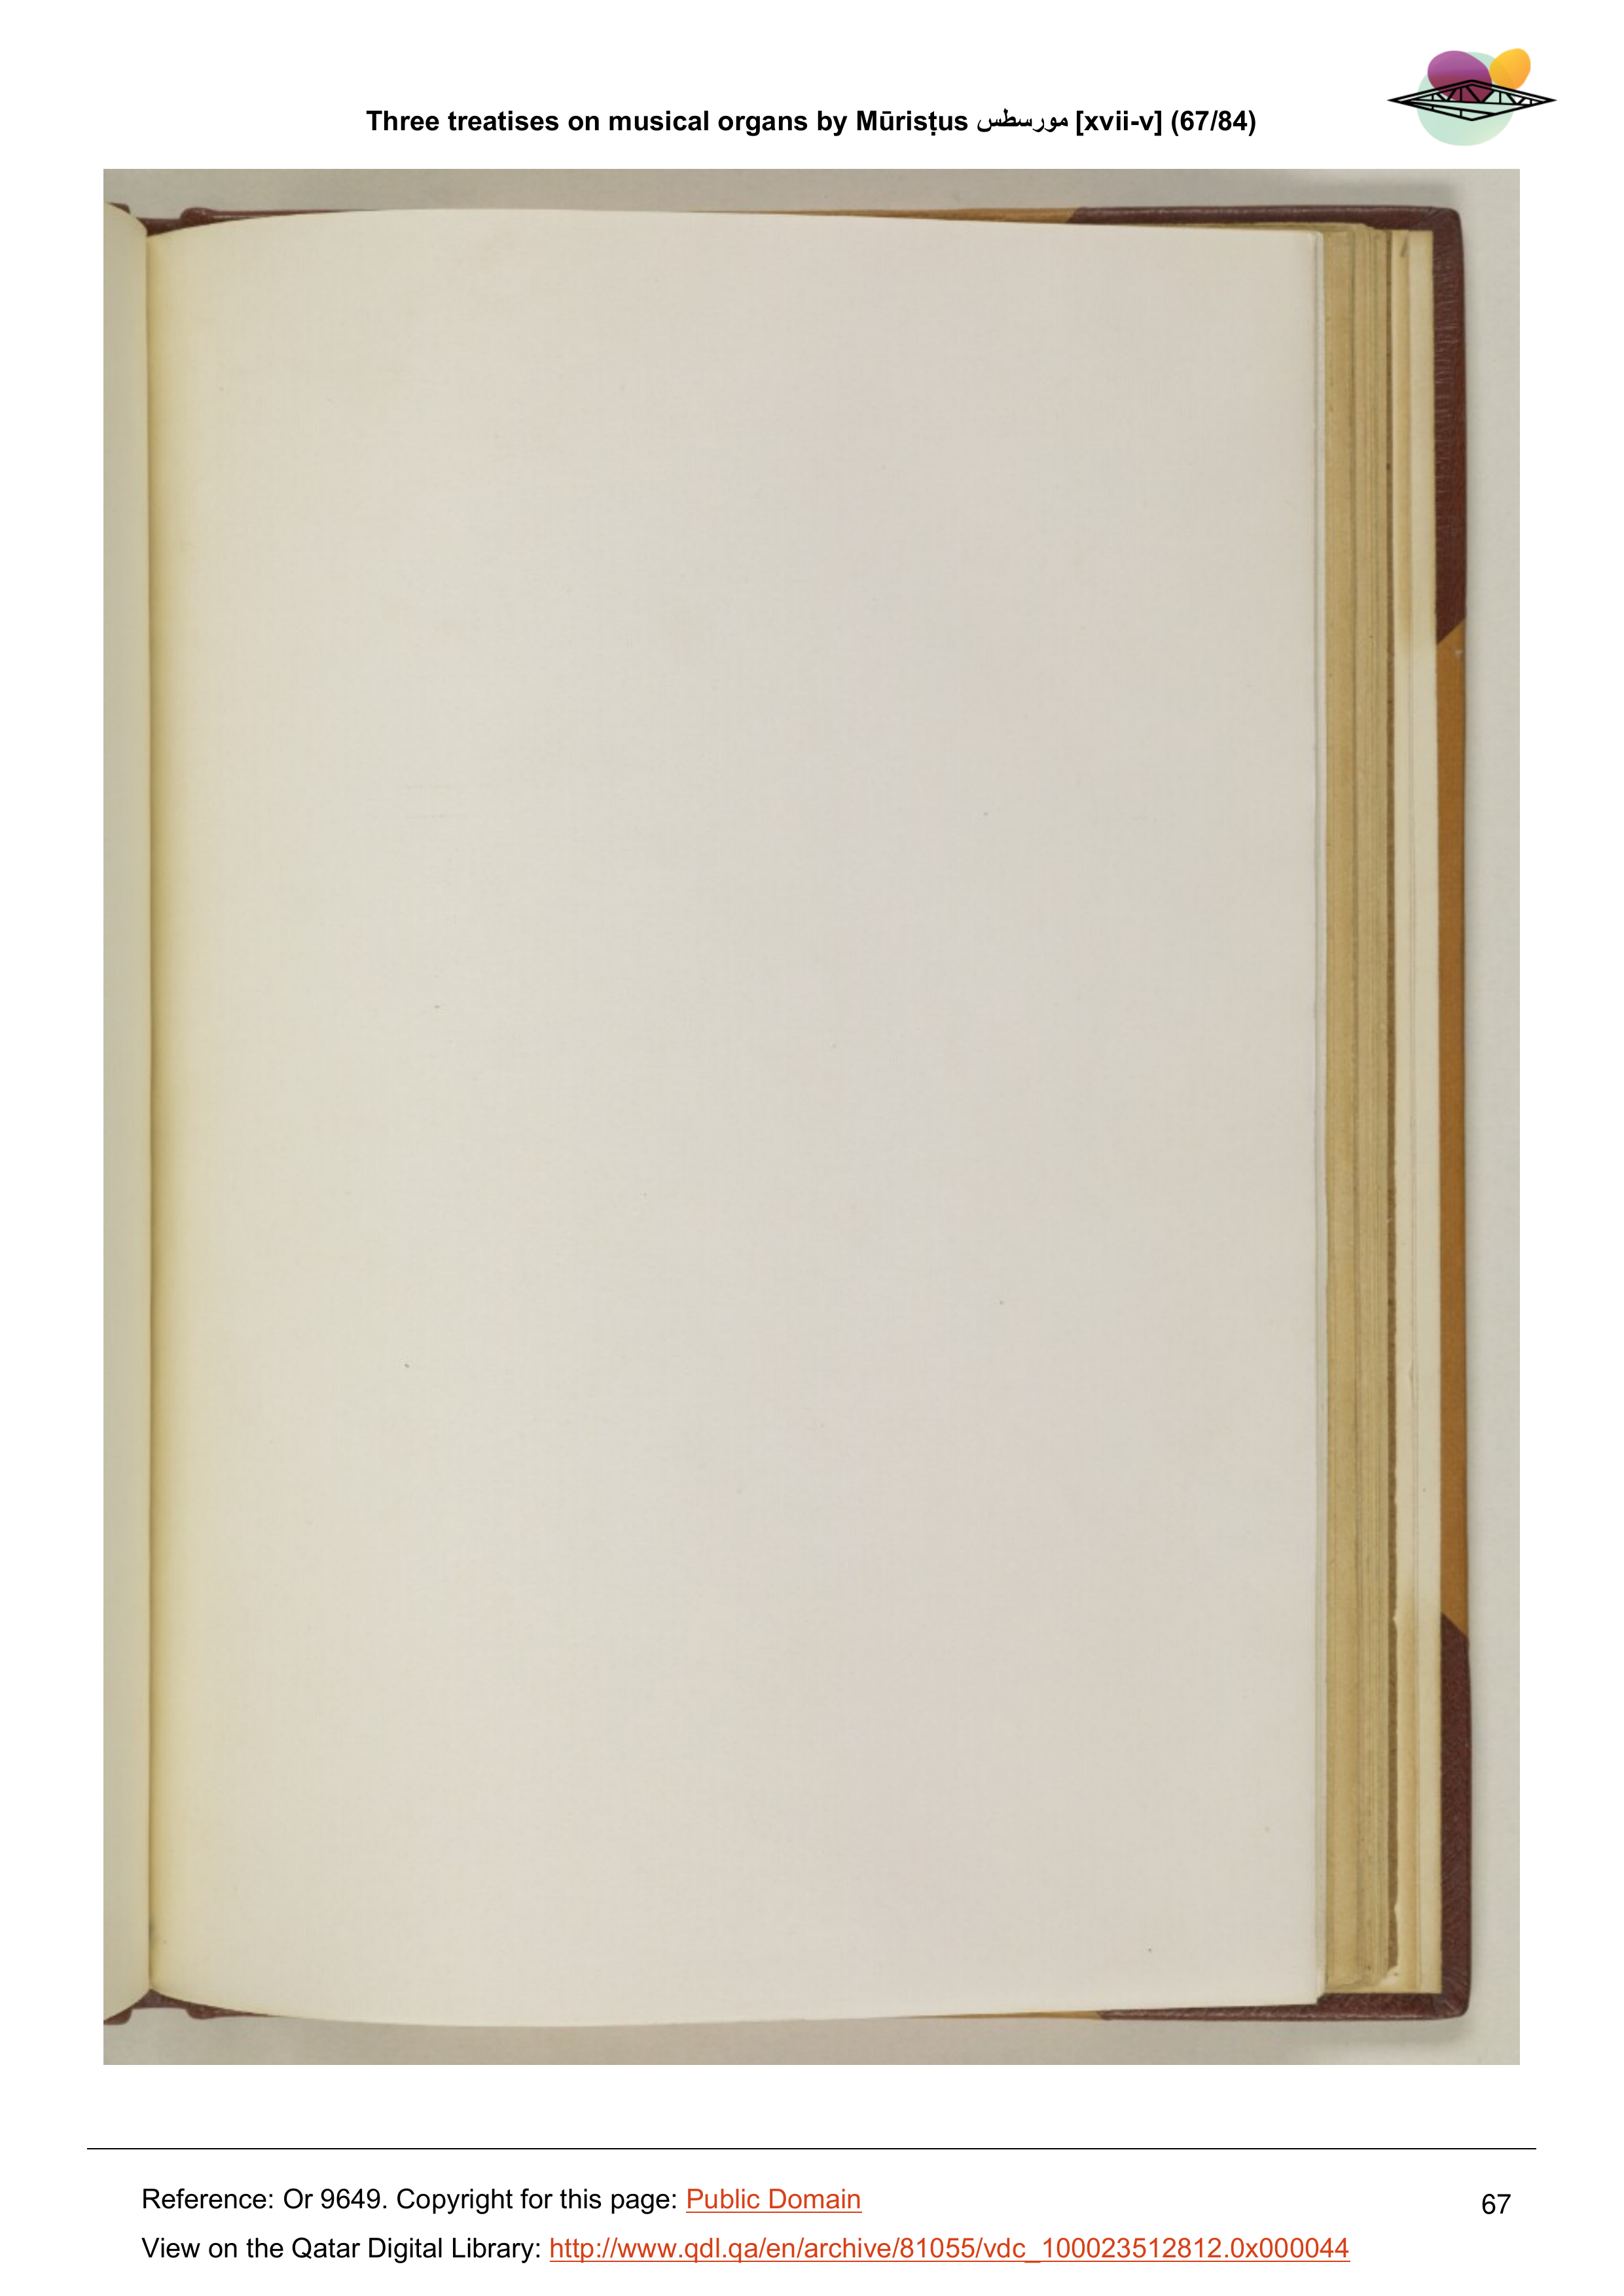 Three treatises on musical organs by Mūrisṭus مورسطس [xvii-v] (67/84)
Reference: Or 9649. Copyright for this page: Public Domain
67
View on the Qatar Digital Library: http://www.qdl.qa/en/archive/81055/vdc_100023512812.0x000044